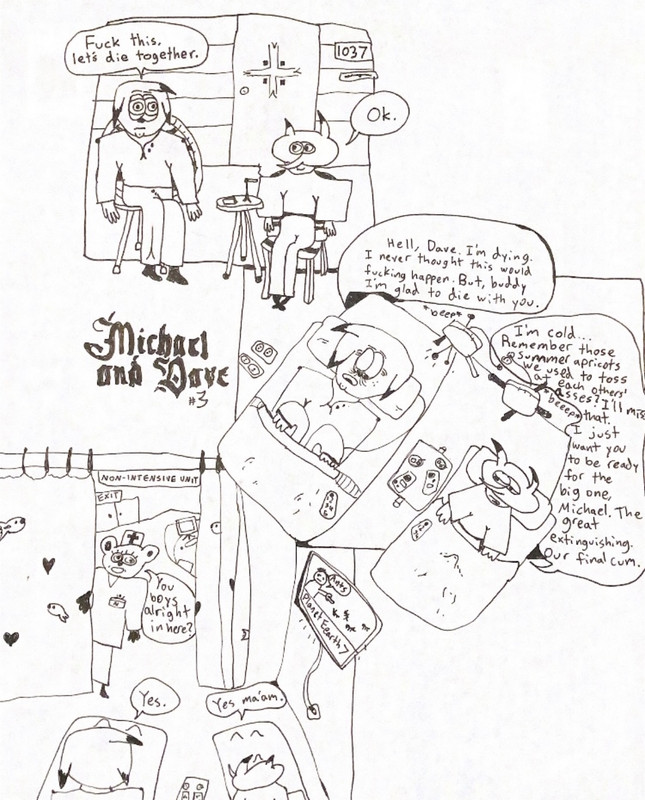 Fuck this,
let's die together.
1037
Ok.
Hell, Dave. I'm dying.
I never thought this would
fucking happen. But, buddy
I'm glad to die with you.
*beep*
Michael
and Dave
#3
I'm cold...
Remember those
summer apricots
we used to toss
at each others'
asses? I'll miss
that.
I just
want you
to be ready
for the
big one,
Michael. The
great
extinguishing.
Our final cum.
*beeep*
NON-INTENSIVE UNIT
EXIT
You
boys
alright
in here?
Ants
Planet Earth 7
Yes.
Yes ma'am.